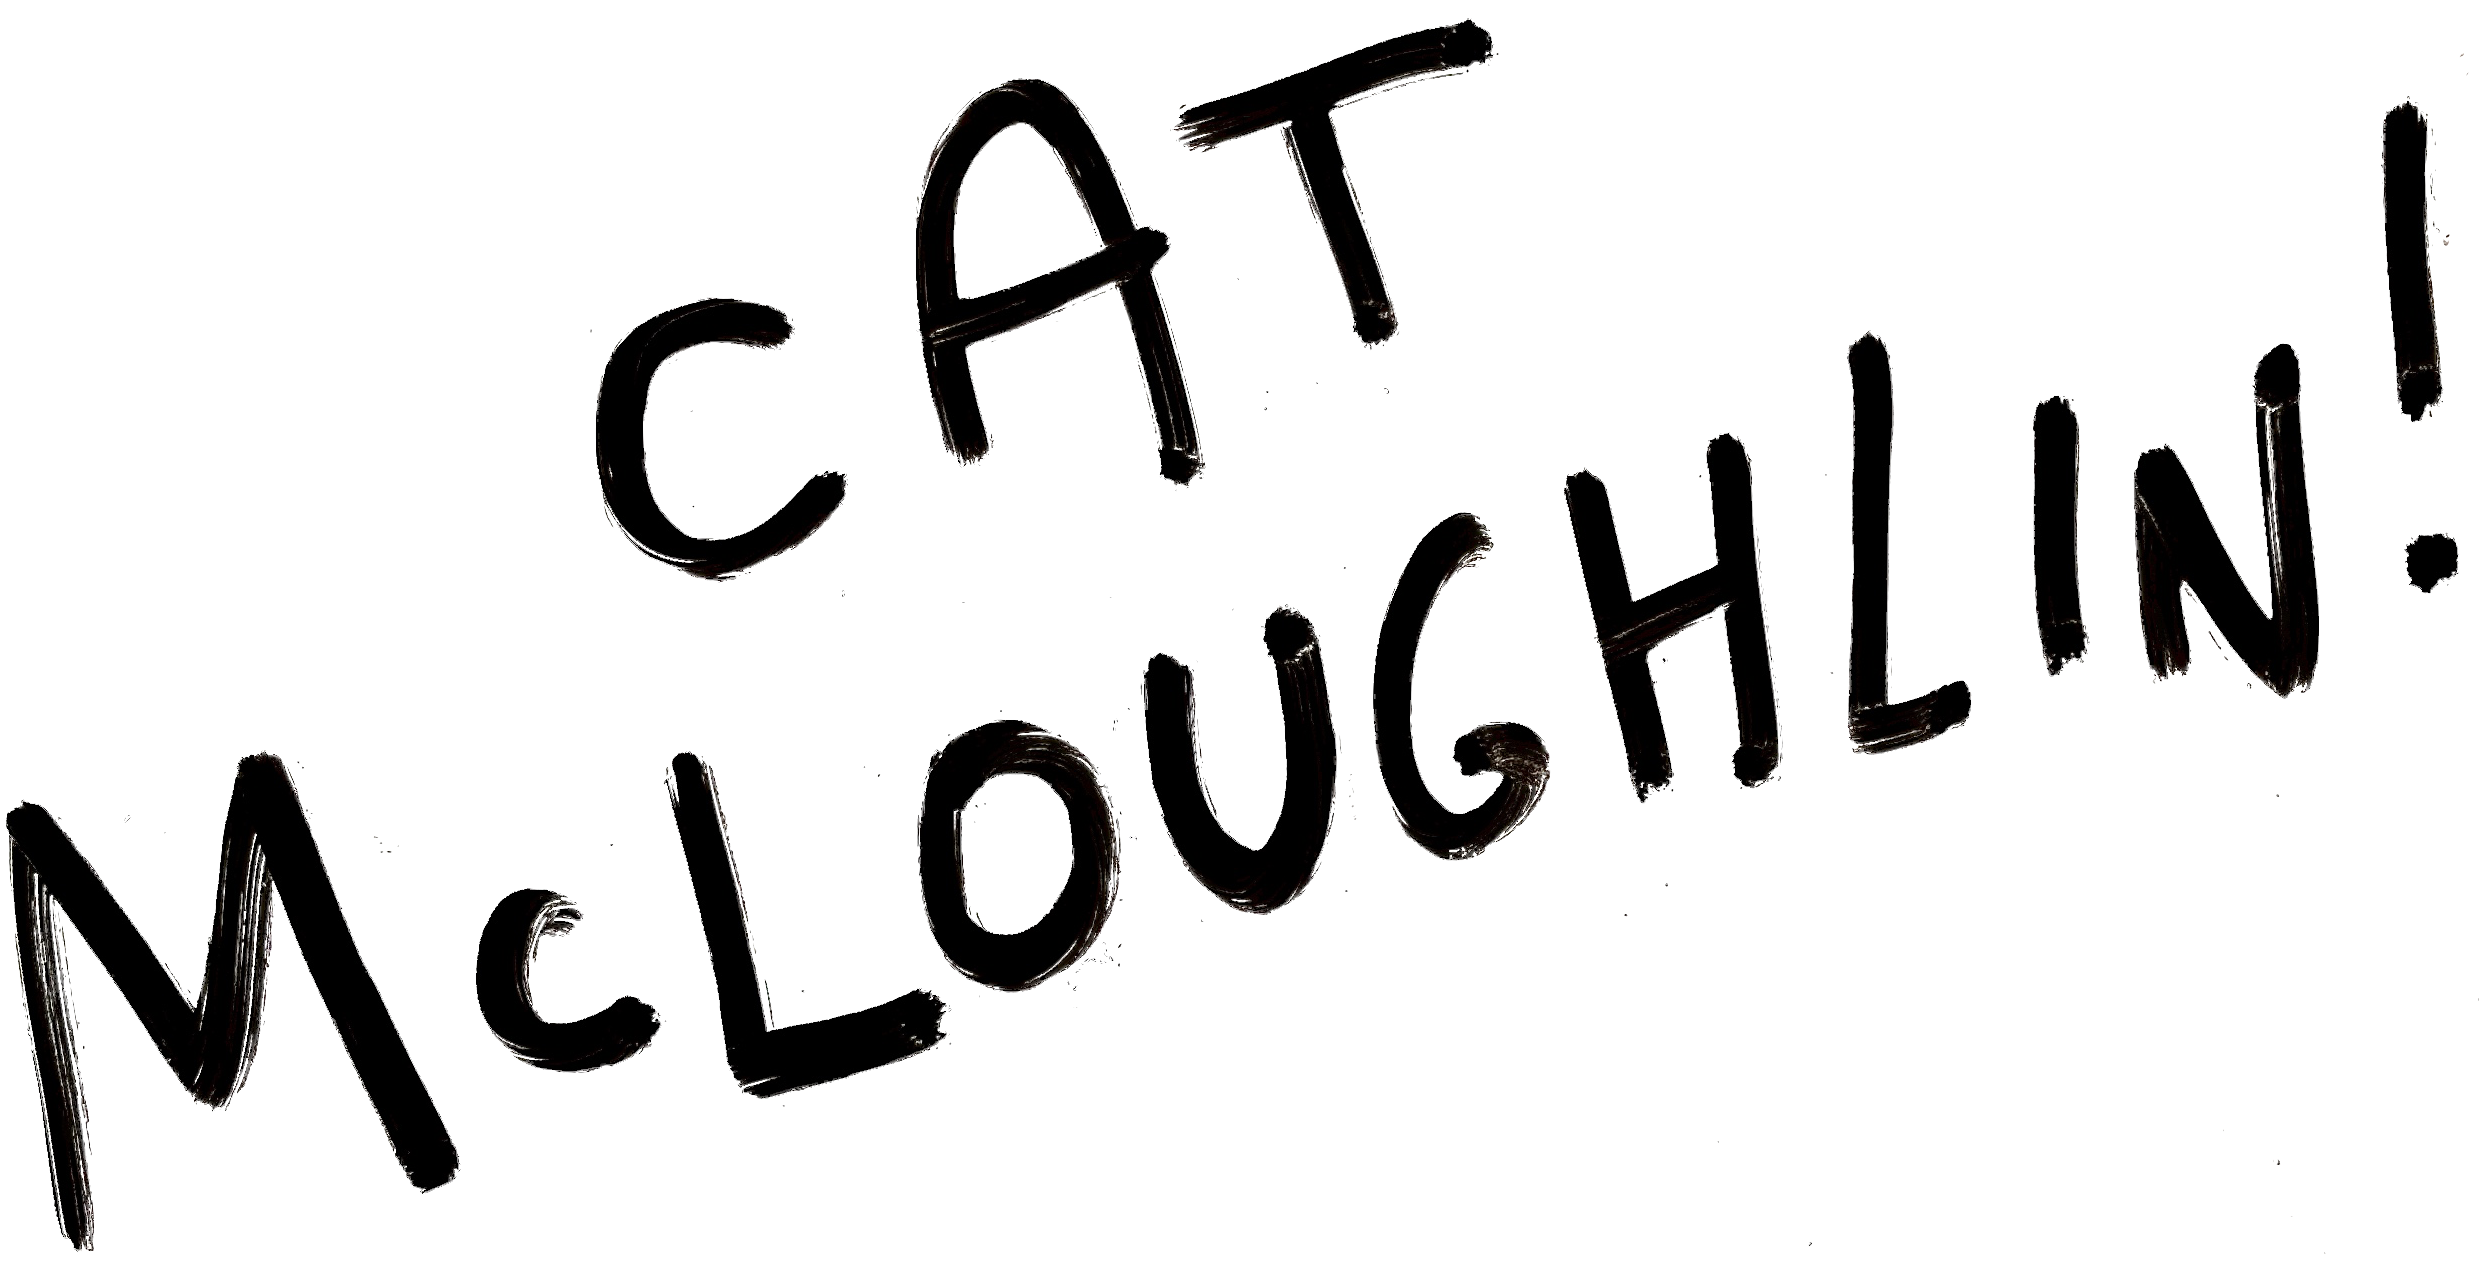 CAT
McLOUGHLIN!